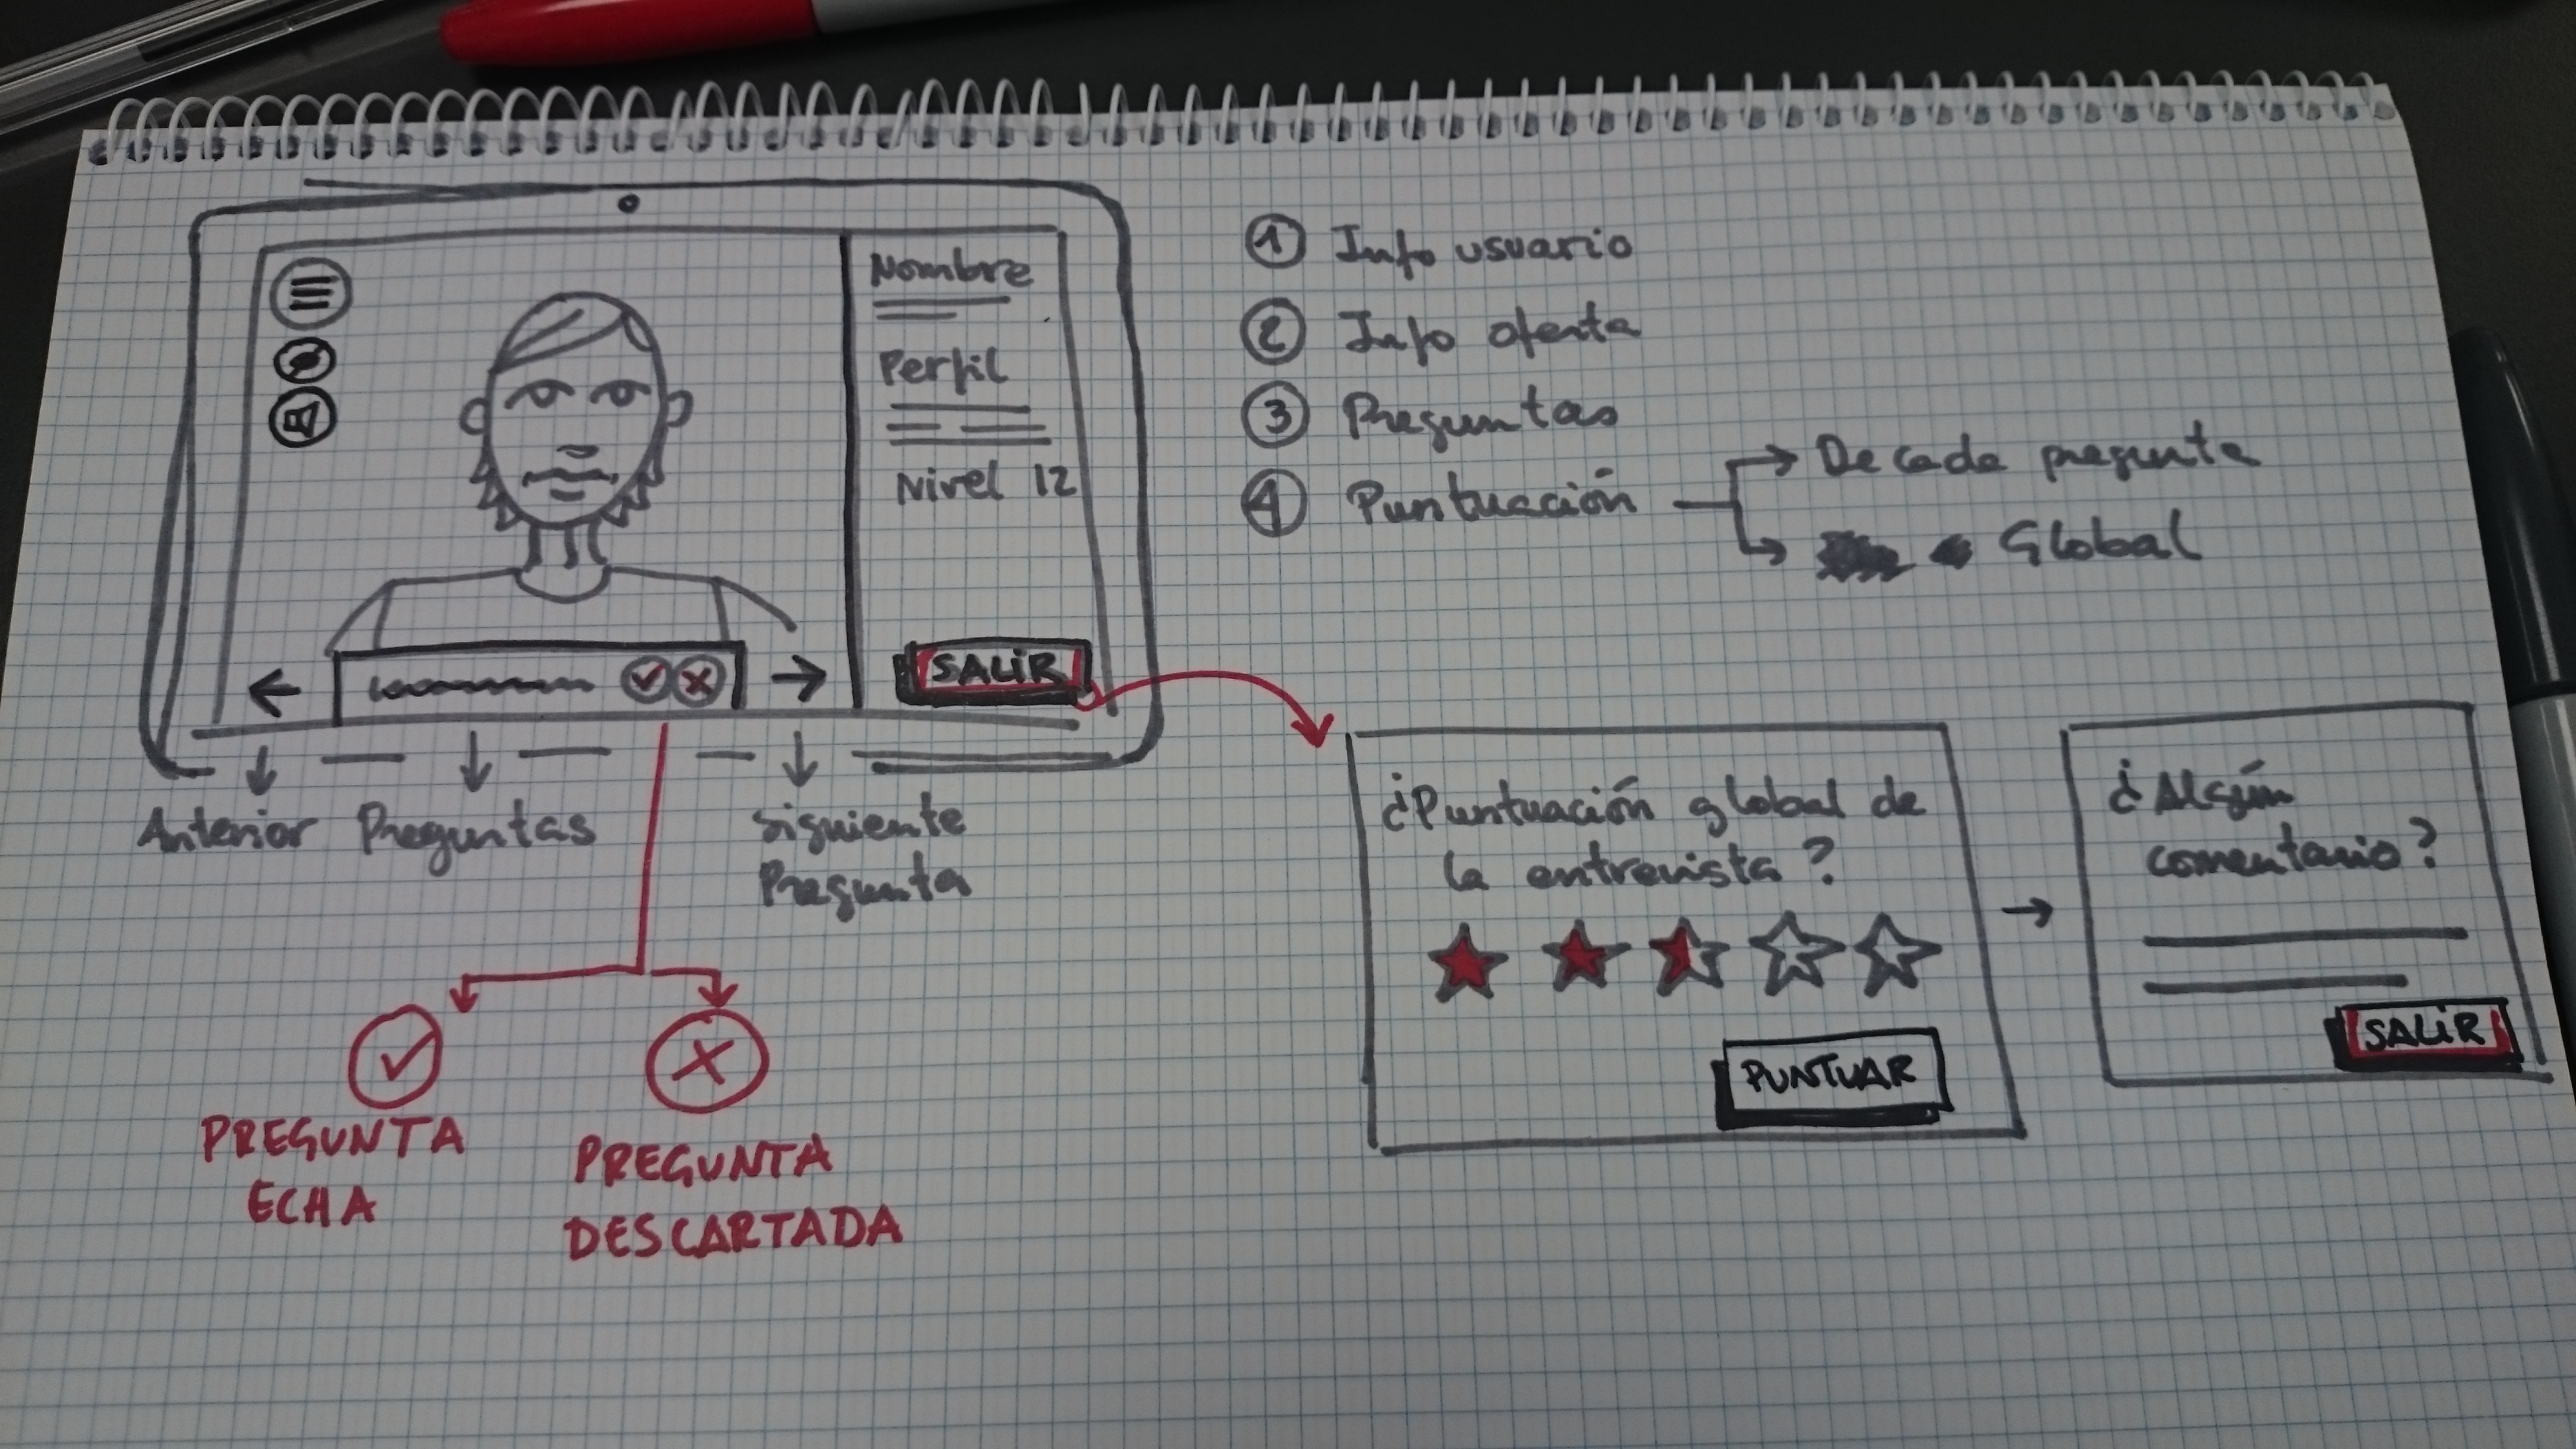 Nombre
Perfil
Nivel 12
SALIR
Anterior
Preguntas
Siguiente
Pregunta
PREGUNTA
ECHA
PREGUNTA
DESCARTADA
1 Info usuario
2 Info oferta
3 Preguntas
4 Puntuación
De cada pregunta
Global
¿Puntuación global de
la entrevista?
PUNTUAR
¿Algún
comentario?
SALIR